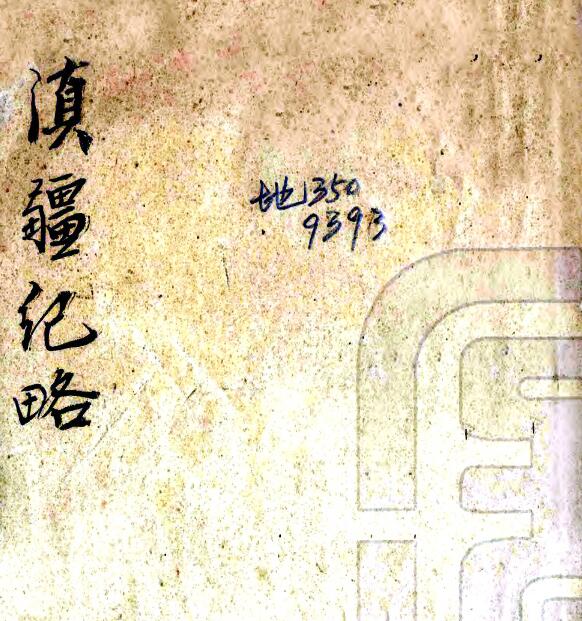 滇疆纪略
地1350
9393